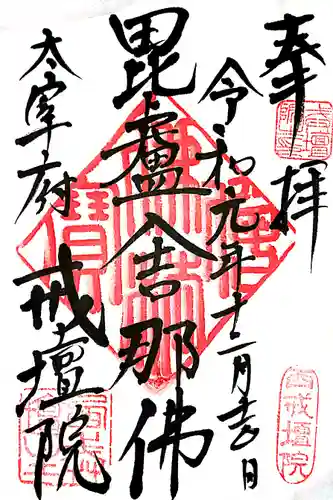 奉拝
令和元年十二月吉日
毘盧舎那佛
太宰府
戒壇院
西戒壇院